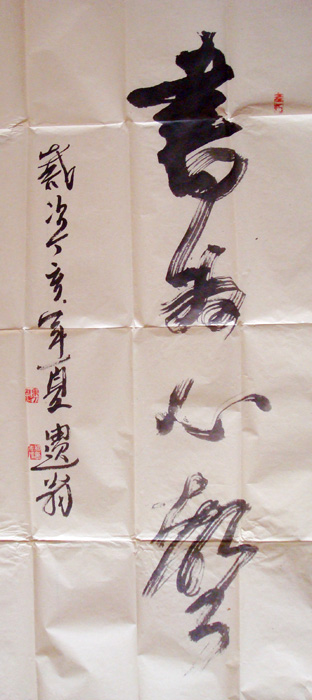 書為心聲
歲次丁亥年夏遺翁